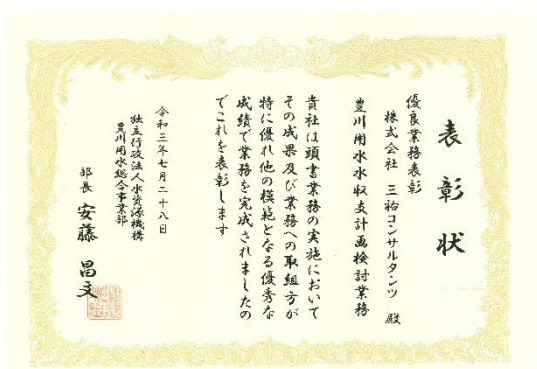 表彰状
優良業務表彰
株式会社 三祐コンサルタンツ 殿
豊川用水水収支計画検討業務
貴社は頭書業務の実施において
その成果及び業務への取組方が
特に優れ他の模範となる優秀な
成績で業務を完成されましたの
でこれを表彰します
令和三年七月二十八日
独立行政法人水資源機構
豊川用水総合事業部
部長 安藤 昌文